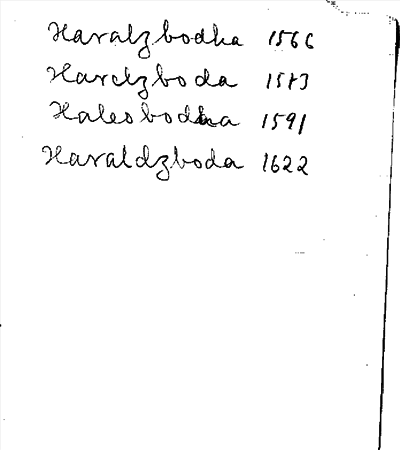 Haralzbodha 1566
Harelzboda 1573
Halesbodha 1591
Haraldzboda 1622